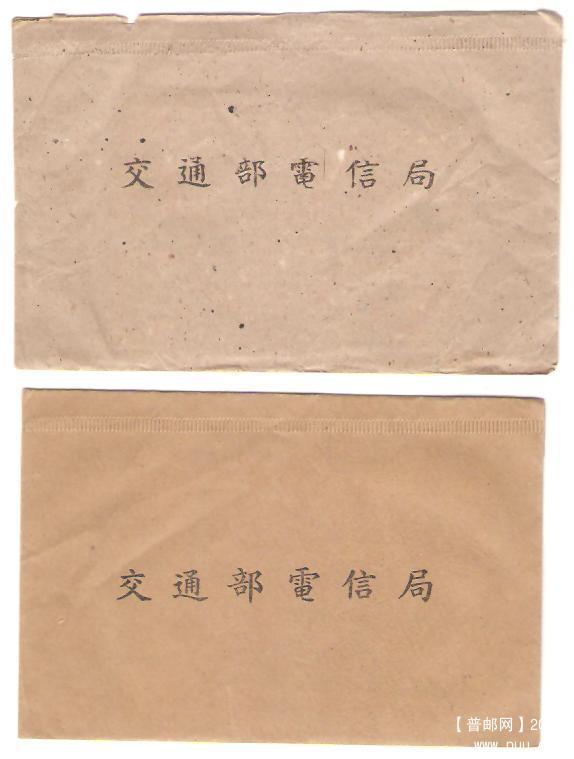 交通部電信局
交通部電信局
【普邮网】20
www.puu.